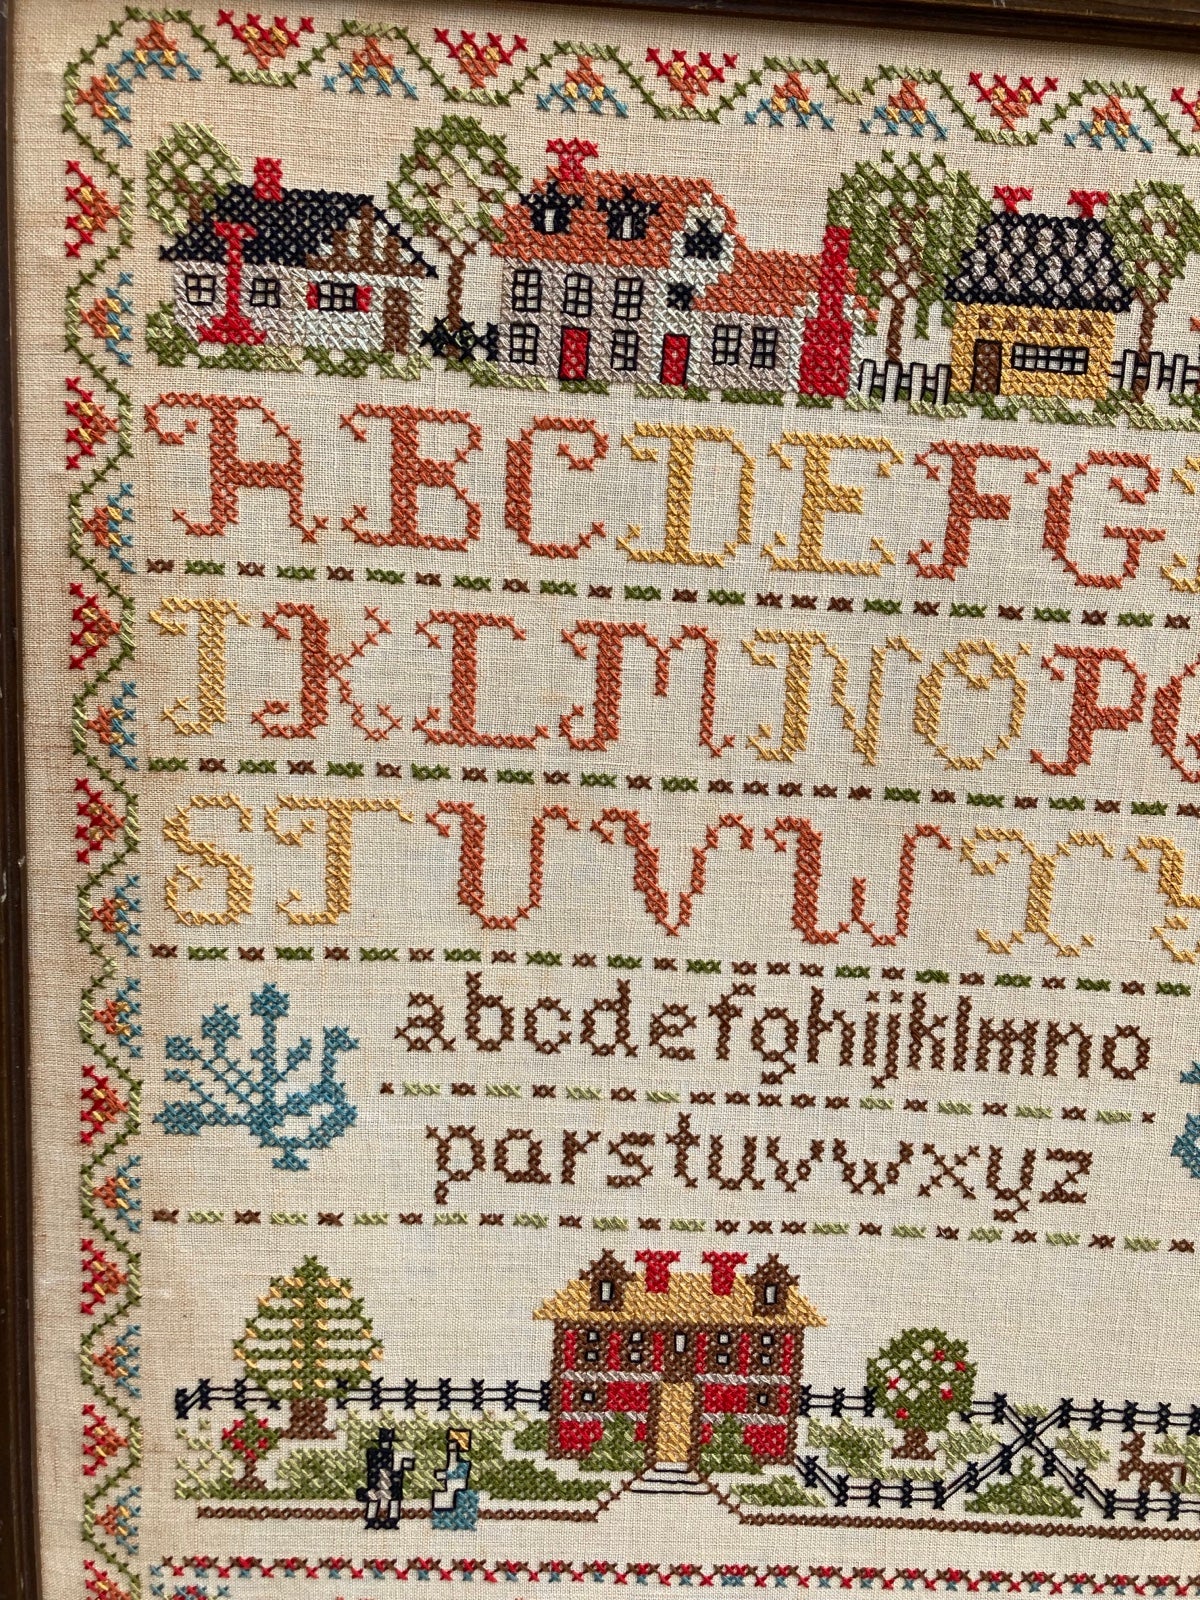 A B C D E F G
J K L M N O P
S T U V W X
abcdefghijklmno
parstuvwxyz